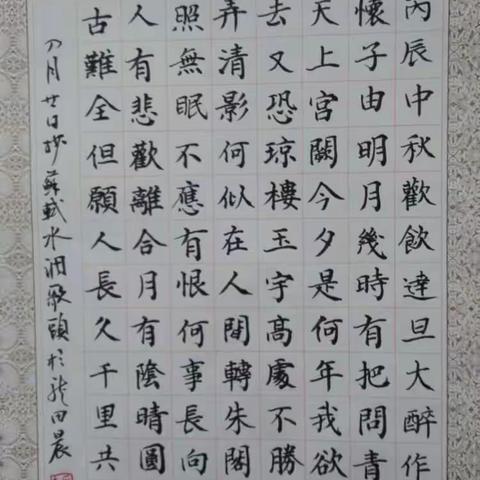 丙辰中秋歡飲達旦大醉作
懷子由明月幾時有把問青
天上宮闕今夕是何年我欲
去又恐瓊樓玉宇高處不勝
弄清影何似在人間轉朱閣
照無眠不應有恨何事長向
人有悲歡離合月有陰晴圓
古難全但願人長久千里共
月廿日抄蘇軾水調歌頭於龍田晨